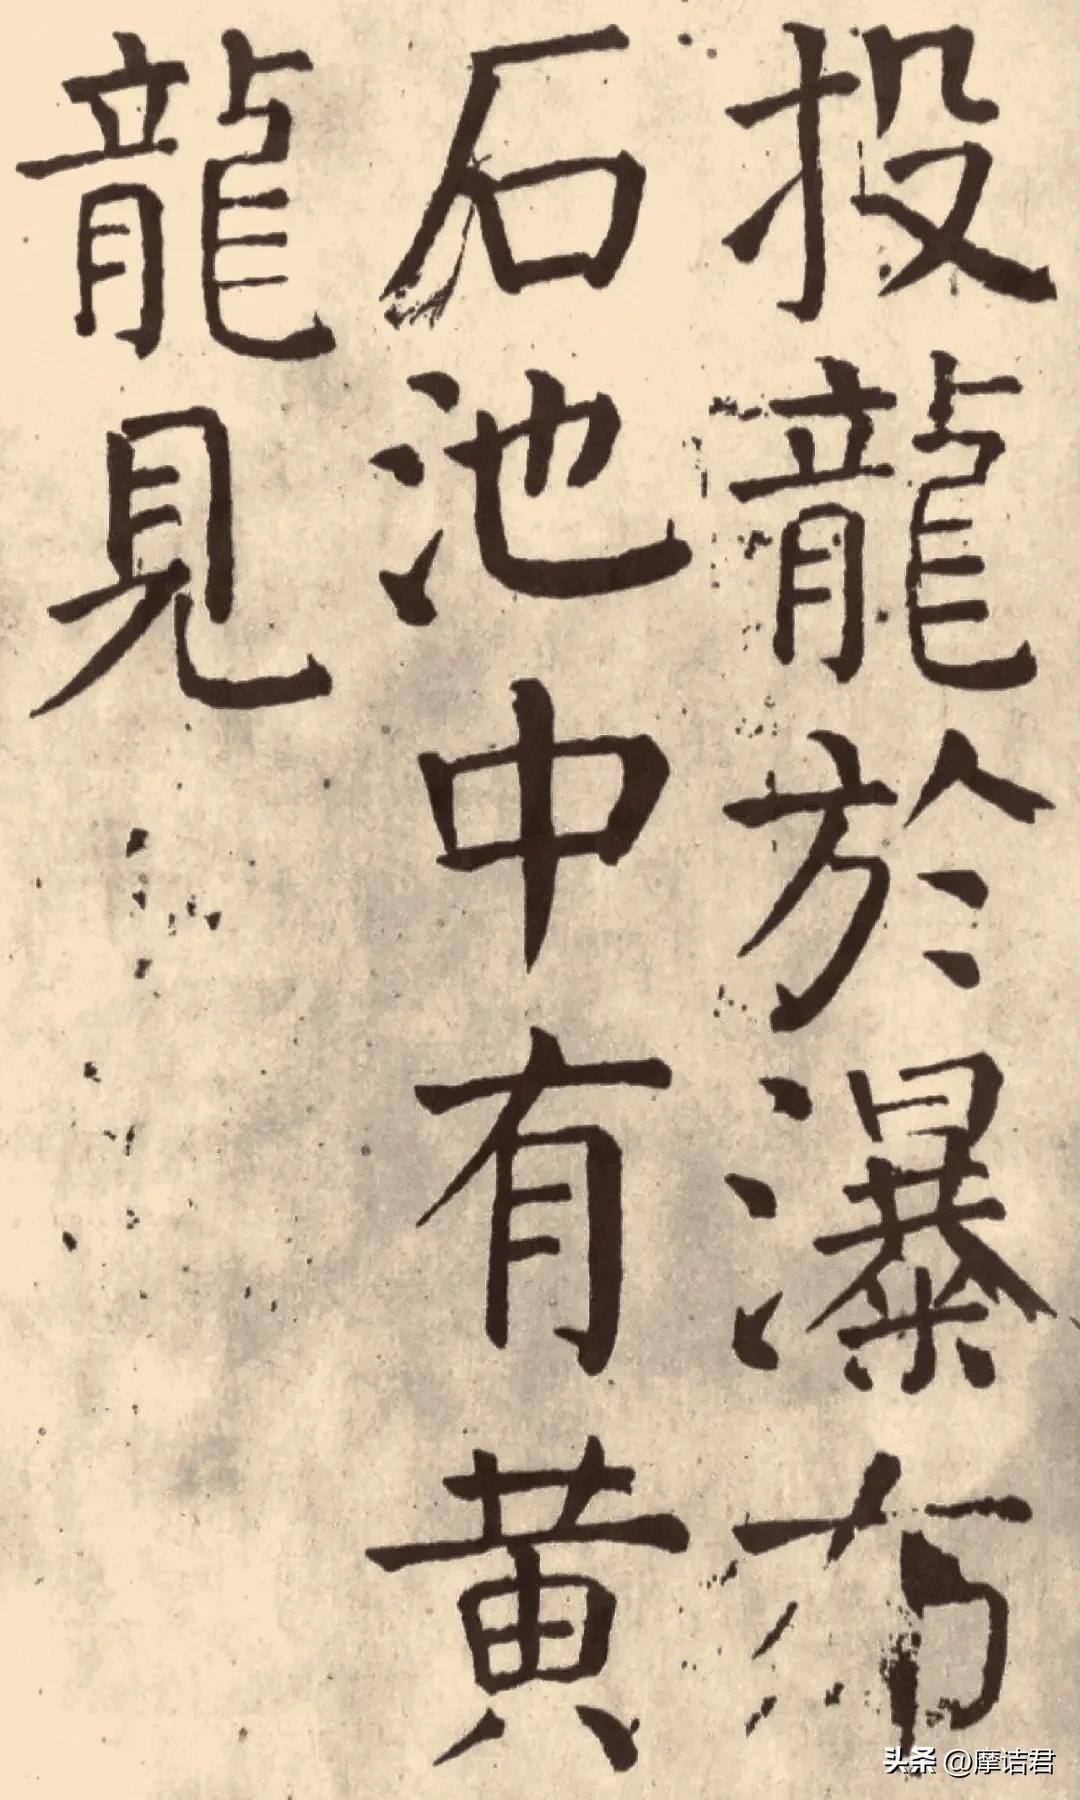 投龍於瀑布
石池中有黄
龍見
头条 @摩诘君